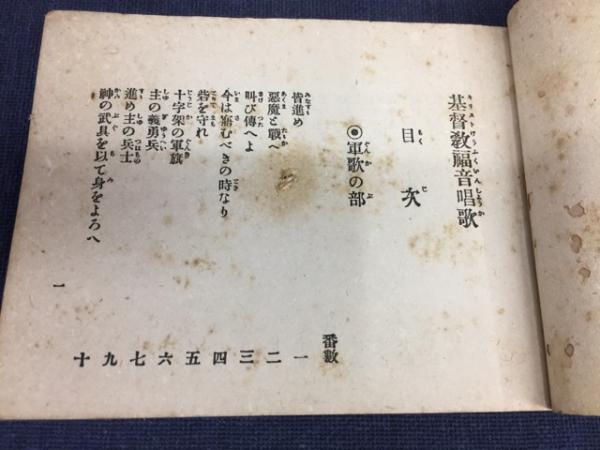 基督敎福音唱歌
目次
◉軍歌の部
番數
皆進め 一
惡魔と戰へ 二
叫び傳へよ 三
今は寤むべきの時なり 四
砦を守れ 五
十字架の軍旗 六
主の義勇兵 七
進め主の兵士 九
神の武具を以て身をよろへ 十
一